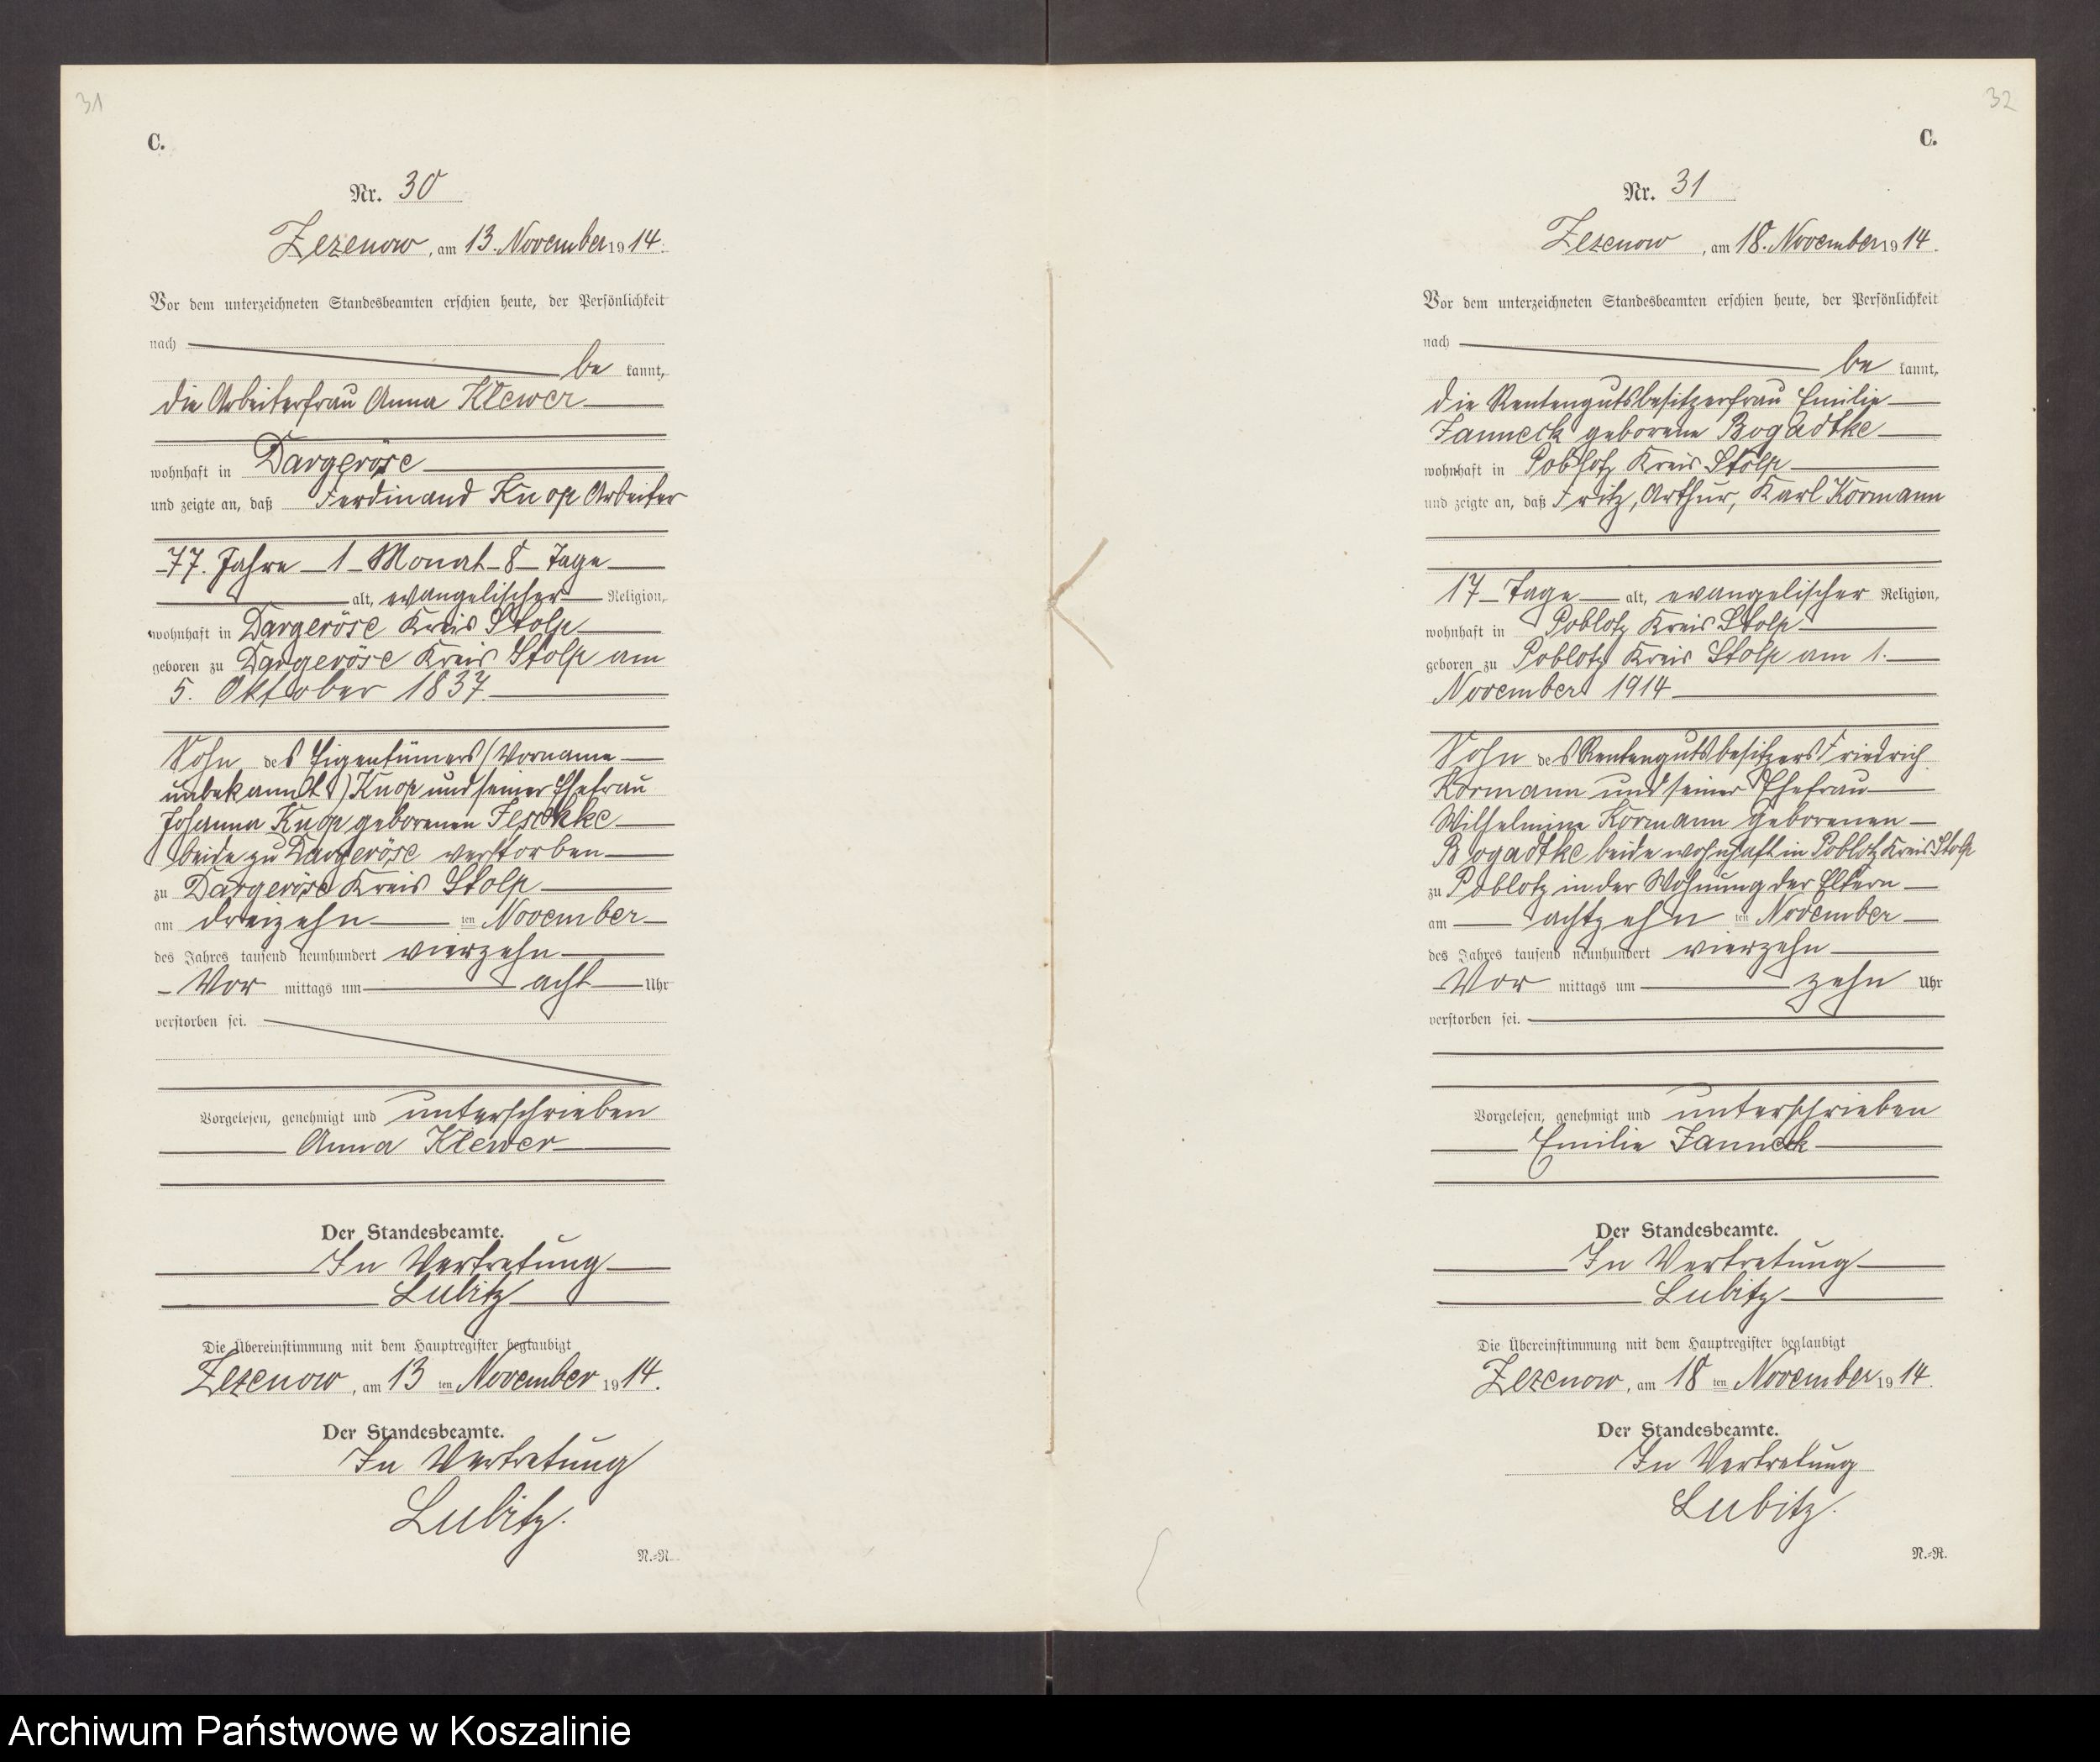 31
C.
Nr. 30
Zezenow, am 13. November 1914.
Vor dem unterzeichneten Standesbeamten erschien heute, der Persönlichkeit
nach
be kannt,
die Arbeiterfrau Anna Klewer
wohnhaft in Dargeröse
und zeigte an, daß Ferdinand Knop Arbeiter
77. Jahre 1 Monat 8 Tage
alt, evangelischer Religion,
wohnhaft in Dargeröse Kreis Stolp
geboren zu Dargeröse Kreis Stolp am
5. Oktober 1837.
Sohn des Eigentümers (Vorname
unbekannt) Knop und seiner Ehefrau
Johanna Knop geborenen Feschke
beide zu Dargeröse verstorben
zu Dargeröse Kreis Stolp
am dreizehn ten November
des Jahres tausend neunhundert vierzehn
Vor mittags um acht Uhr
verstorben sei.
Vorgelesen, genehmigt und unterschrieben
Anna Klewer
Der Standesbeamte.
In Vertretung
Lubitz
Die Übereinstimmung mit dem Hauptregister beglaubigt
Zezenow, am 13 ten November 1914.
Der Standesbeamte.
In Vertretung
Lubitz.
N.=R.
32
C.
Nr. 31
Zezenow, am 18. November 1914.
Vor dem unterzeichneten Standesbeamten erschien heute, der Persönlichkeit
nach
be kannt,
die Rentengutsbesitzerfrau Emilie
Janneck geborene Bogadtke
wohnhaft in Poblotz Kreis Stolp
und zeigte an, daß Fritz, Arthur, Karl Kormann
17 Tage alt, evangelischer Religion,
wohnhaft in Poblotz Kreis Stolp
geboren zu Poblotz Kreis Stolp am 1.
November 1914
Sohn des Rentengutsbesitzers Friedrich
Kormann und seiner Ehefrau
Wilhelmine Kormann geborenen
Bogadtke beide wohnhaft in Poblotz Kreis Stolp
zu Poblotz in der Wohnung der Eltern
am achtzehn ten November
des Jahres tausend neunhundert vierzehn
Vor mittags um zehn Uhr
verstorben sei.
Vorgelesen, genehmigt und unterschrieben
Emilie Janneck
Der Standesbeamte.
In Vertretung
Lubitz
Die Übereinstimmung mit dem Hauptregister beglaubigt
Zezenow, am 18 ten November 1914.
Der Standesbeamte.
In Vertretung
Lubitz.
N.=R.
Archiwum Państwowe w Koszalinie